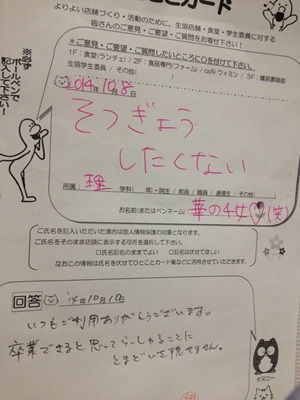 ことカード
よりよい店舗づくり・活動のために、生協店舗・食堂・学生委員に対する
皆さんのご意見、ご要望、ご質問をお寄せ下さい!
※必ず
ボールペンで
記入して下さい!
＊ご意見・ご要望・ご質問したいところに○を付けて下さい。
1F:食堂(ランチェ) / 2F:食品専門(ファーム / café ヴィミン / 3F:購買書籍部
生協学生委員 / その他(
'14年10月8日
そつぎょう
したくない
所属: 理 学科( 年)・院生 / 教員 / 職員 / 通信生 / その他(
お名前(またはペンネーム 華の4女(笑)
ご氏名を記入いただいた場合は個人情報保護の対象となります。
ご氏名をそのまま店頭に表示する河否を選択して下さい。
□記名のままでよい □記名は伏せてほしい
なおこの情報は氏名を伏せてひとことカード集などに活用させていただきます。
回答
'14年10月10日
いつもご利用ありがとうございます。
卒業できると思ってらっしゃることに
とまどいを隠せません。
タヌロー